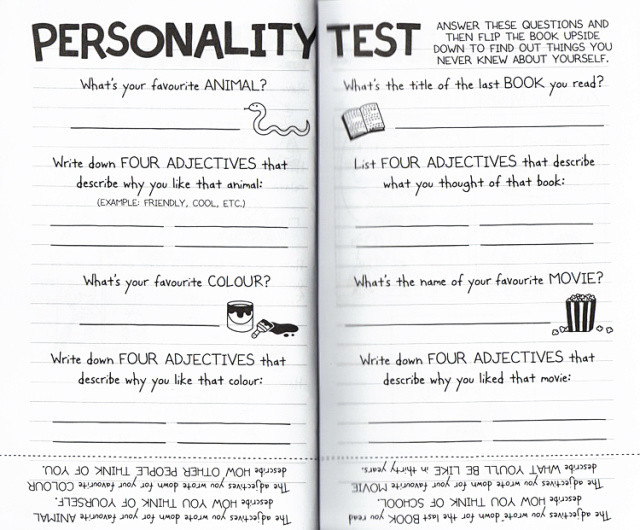 PERSONALITY TEST
ANSWER THESE QUESTIONS AND
THEN FLIP THE BOOK UPSIDE
DOWN TO FIND OUT THINGS YOU
NEVER KNEW ABOUT YOURSELF.
What's your favourite ANIMAL?
Write down FOUR ADJECTIVES that
describe why you like that animal:
(EXAMPLE: FRIENDLY, COOL, ETC.)
What's your favourite COLOUR?
Write down FOUR ADJECTIVES that
describe why you like that colour:
The adjectives you wrote down for your favourite ANIMAL
describe HOW YOU THINK OF YOURSELF.
The adjectives you wrote down for your favourite COLOUR
describe HOW OTHER PEOPLE THINK OF YOU.
What's the title of the last BOOK you read?
List FOUR ADJECTIVES that describe
what you thought of that book:
What's the name of your favourite MOVIE?
Write down FOUR ADJECTIVES that
describe why you liked that movie:
The adjectives you wrote down for the last BOOK you read
describe HOW YOU THINK OF SCHOOL.
The adjectives you wrote down for your favourite MOVIE
describe WHAT YOU'LL BE LIKE in thirty years.